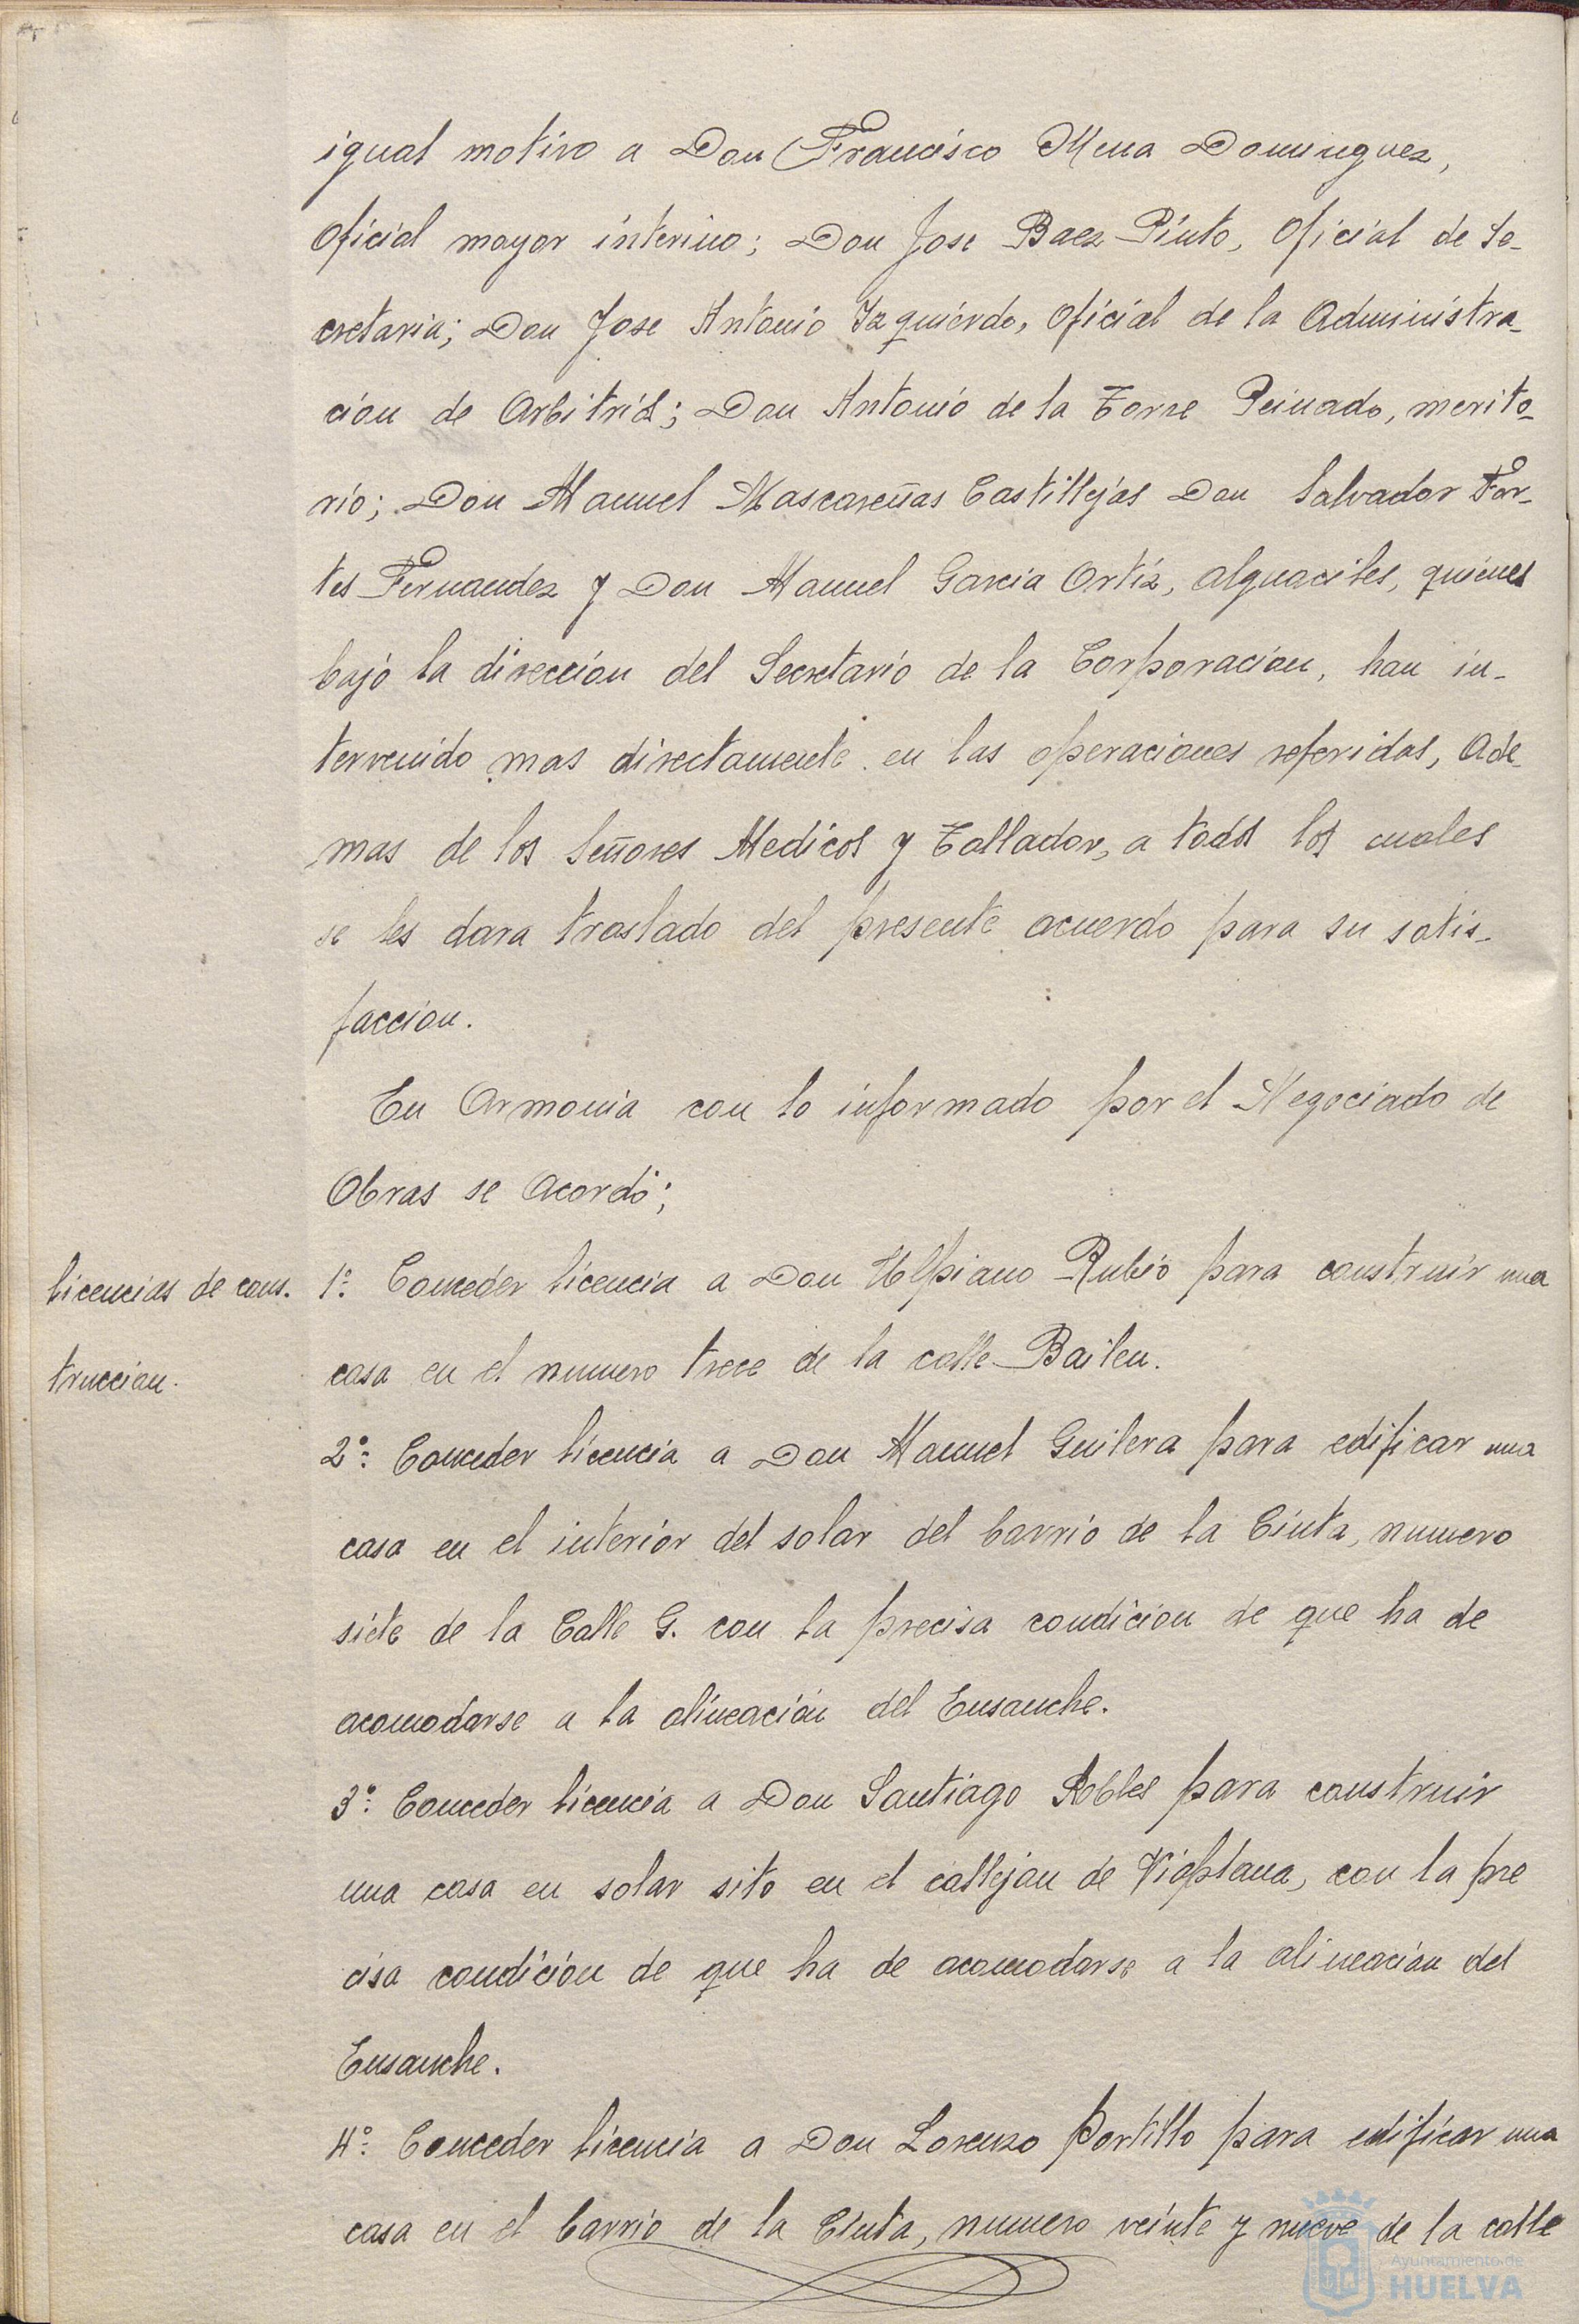 igual motivo a Don Francisco Mena Dominguez,
Oficial mayor interino; Don Jose Baez Pinto, Oficial de Se-
cretaria; Don Jose Antonio Izquierdo, Oficial de la Administra-
cion de Arbitrios; Don Antonio de la Torre Peinado, merito-
rio; Don Manuel Mascareñas Castillejos Don Salvador For-
tes Fernandez y Don Manuel Garcia Ortiz, alguaciles, quienes
bajo la direccion del Secretario de la Corporacion, han in-
tervenido mas directamente en las operaciones referidas, Ade-
mas de los Señores Medicos y Tallador, a todos los cuales
se les dara traslado del presente acuerdo para su satis-
faccion.
En Armonia con lo informado por el Negociado de
Obras se Acordó;
licencias de cons-
truccion.
1º: Conceder licencia a Don Ulpiano Rubio para construir una
casa en el numero trece de la calle Bailen.
2º: Conceder licencia a Don Manuel Guilera para edificar una
casa en el interior del solar del barrio de la Cinta, numero
siete de la Calle G. con la precisa condicion de que ha de
acomodarse a la alineación del Ensanche.
3º: Conceder licencia a Don Santiago Robles para construir
una casa en solar sito en el callejon de Viaplana, con la pre
cisa condición de que ha de acomodarse a la alineacion del
Ensanche.
4º: Conceder licencia a Don Lorenzo Portillo para edificar una
casa en el barrio de la Cinta, numero veinte y nueve de la calle
Ayuntamiento de
HUELVA